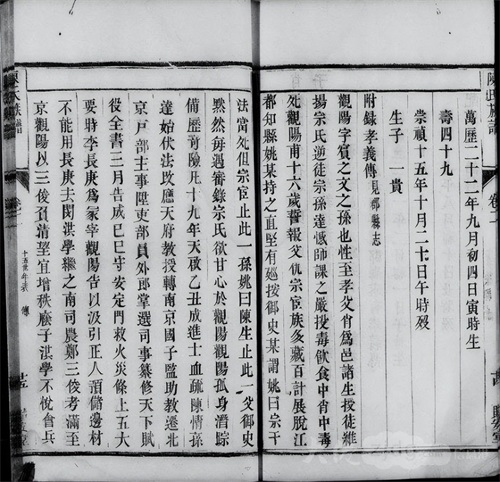 陳氏族譜
卷二
萬歷二十二年九月初四日寅時生
壽四十九
崇禎十五年十月二十七日午時歿
生子一貴
附錄孝義傳見郡縣志
觀陽字賓之文之孫也性至孝父肖爲邑諸生授徒維
揚宗氏逆徒宗孫達憾師課之嚴投毒飮食中肖中毒
死觀陽甫十六歲誓報父仇宗宦族多藏百計展脫江
都知縣姚某持之直堅有廵按御史某謂姚曰宗千
法當死但宗宦止此一孫姚曰陳生止此一父御史
默然每遇審錄宗氏欲甘心於觀陽觀陽孤身潛踪
備歷奇險凡十九年天啟乙丑成進士血疏陳情孫
達始伏法改應天府教授轉南京國子監助教遷北
京戸部主事陞吏部員外郎掌選司事纂修天下賦
役全書三月告成已巳守安定門救火災條上五大
要將李長庚爲冢宰觀陽告以汲引正人預儲邊材
不能用長庚去閔洪學繼之南司農鄭三俊考滿至
京觀陽以三俊召淸望宜增秩廕子洪學不悅會兵
陳氏族譜
卷二
十五世年表 傳